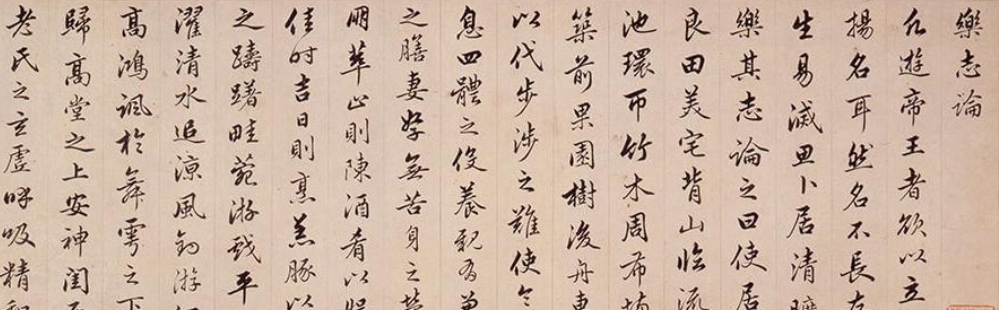 樂志論
凡遊帝王者欲以立
揚名耳然名不長存
生易滅思卜居清曠
樂其志論之曰使居
良田美宅背山臨流
池環帀竹木周布場
築前果園樹後舟車
以代步涉之難使令
息四體之役養親有兼
之膳妻孥無苦身之
朋萃止則陳酒肴以娛
佳時吉日則烹羔豚以
之躊躇畦菀游戲平
濯清水追涼風釣游
高鴻諷於舞雩之下
歸高堂之上安神閨
老氏之玄虛呼吸精和